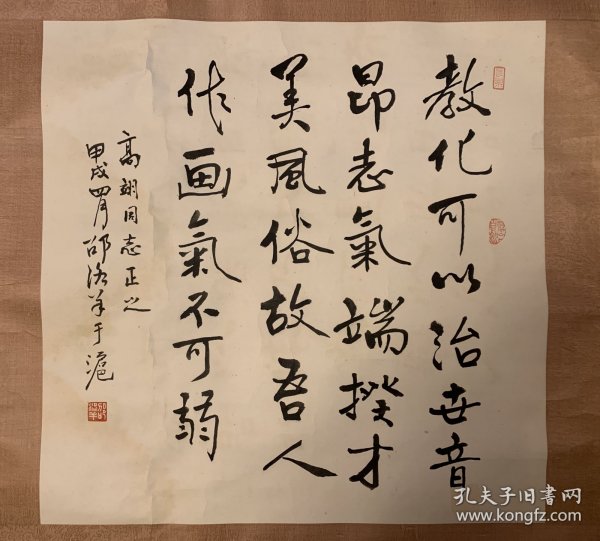 教化可以治世音
昂志氣端揆才
美風俗故吾人
作画氣不可弱
高翊同志正之
甲戌四月邵洛羊于滬
孔夫子旧書网
www.kongfz.com